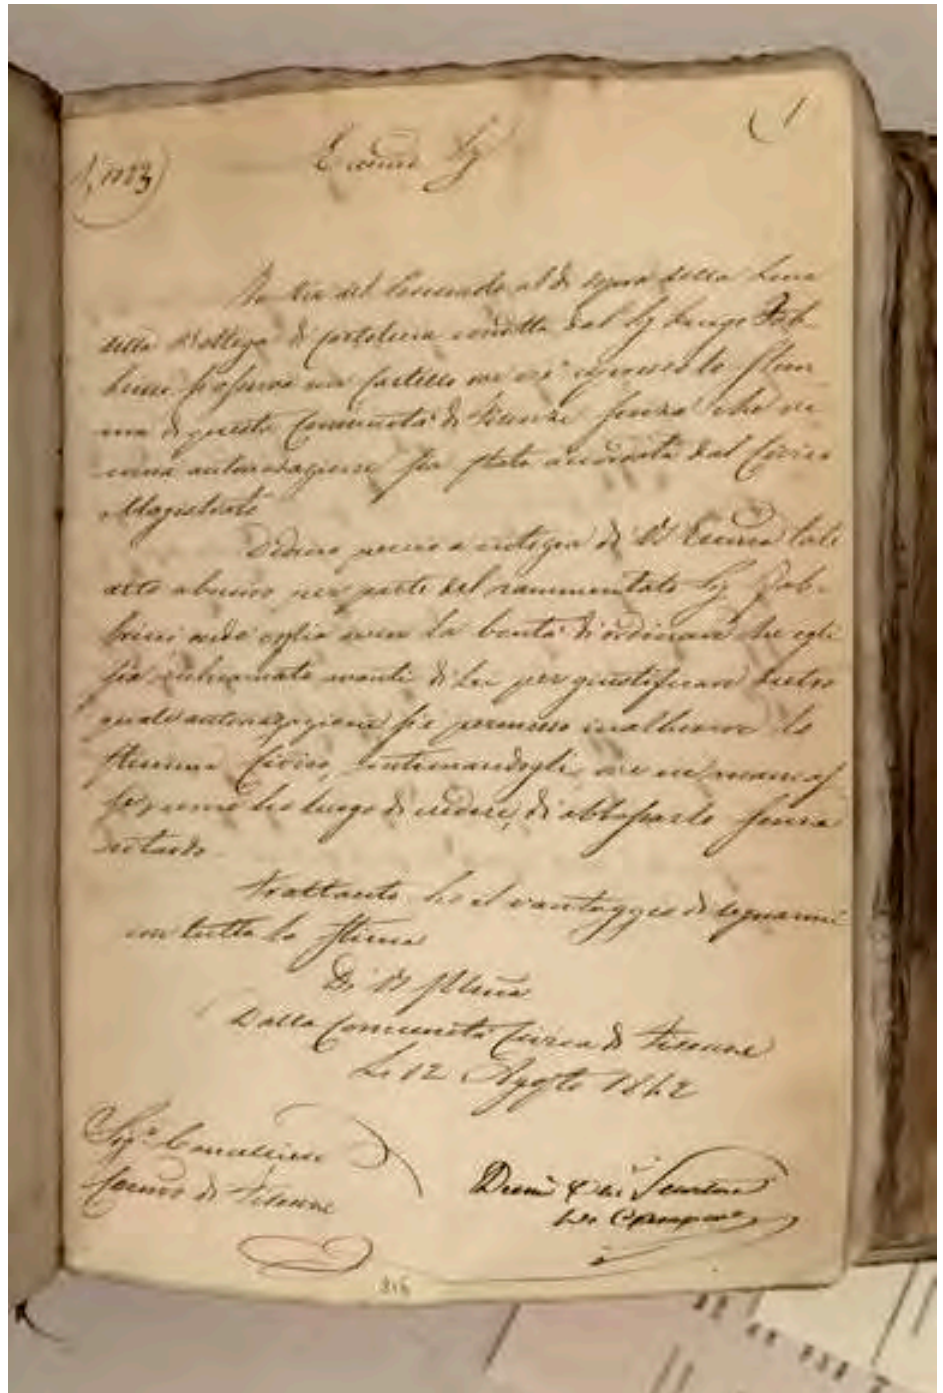 1
Sig
In Via del al di sopra della
della Bottega di Cartoleria condotta dal Sig Luigi Fab-
brini si osserva un Cartello ove vi è espresso lo Stem-
ma di questa Comunità di Firenze senza che ve-
runa autorizzazione sia stata accordata dal Civico
Magistrato
Deduco perciò a notizia di VS tale
atto abusivo per parte del rammentato Sig Fab-
brini onde voglia aver la bontà di ordinare che egli
sia richiamato avanti di Lei per giustificare dietro
quale autorizzazione si è permesso inalberare lo
Stemma Civico, intimandogli, ove ne manchi
come ho luogo di credere, di abbassarlo senza
ritardo.
Frattanto ho il vantaggio di segnarmi
con tutta la stima
Di VS
Dalla Comunità Civica di Firenze
Li 12 Agosto 1842
Sig.
di Firenze
816